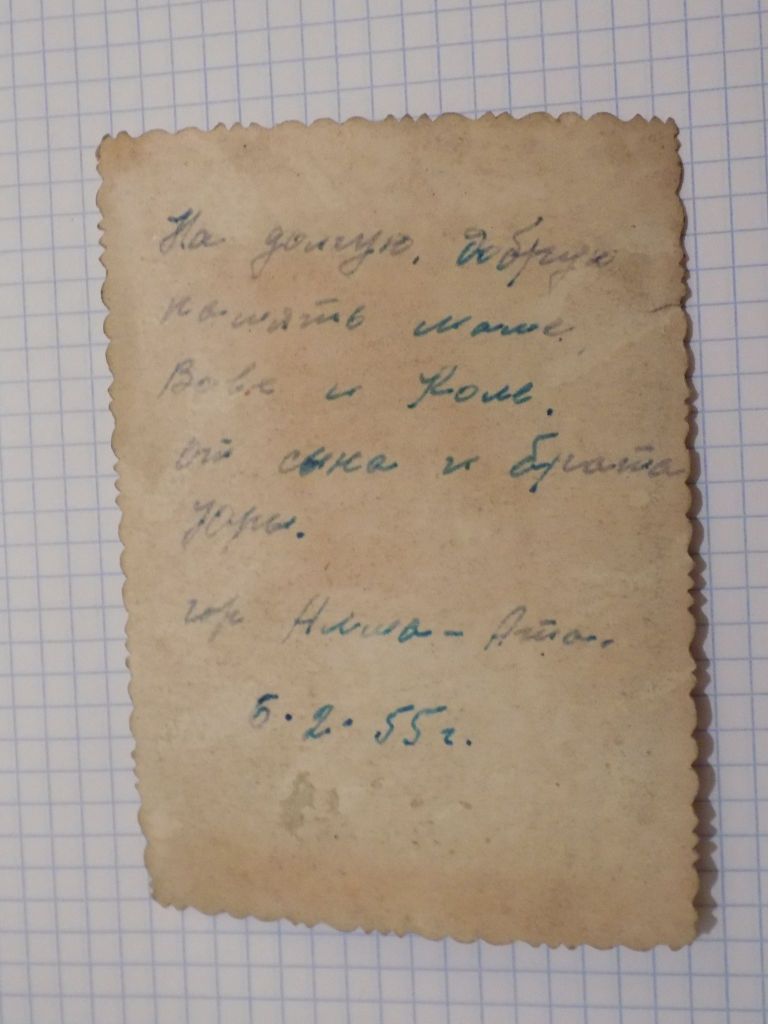 На долгую, добрую
память маме,
Вове и Коле.
от сына и брата
Юры.
гор Алма-Ата.
5.2.55г.